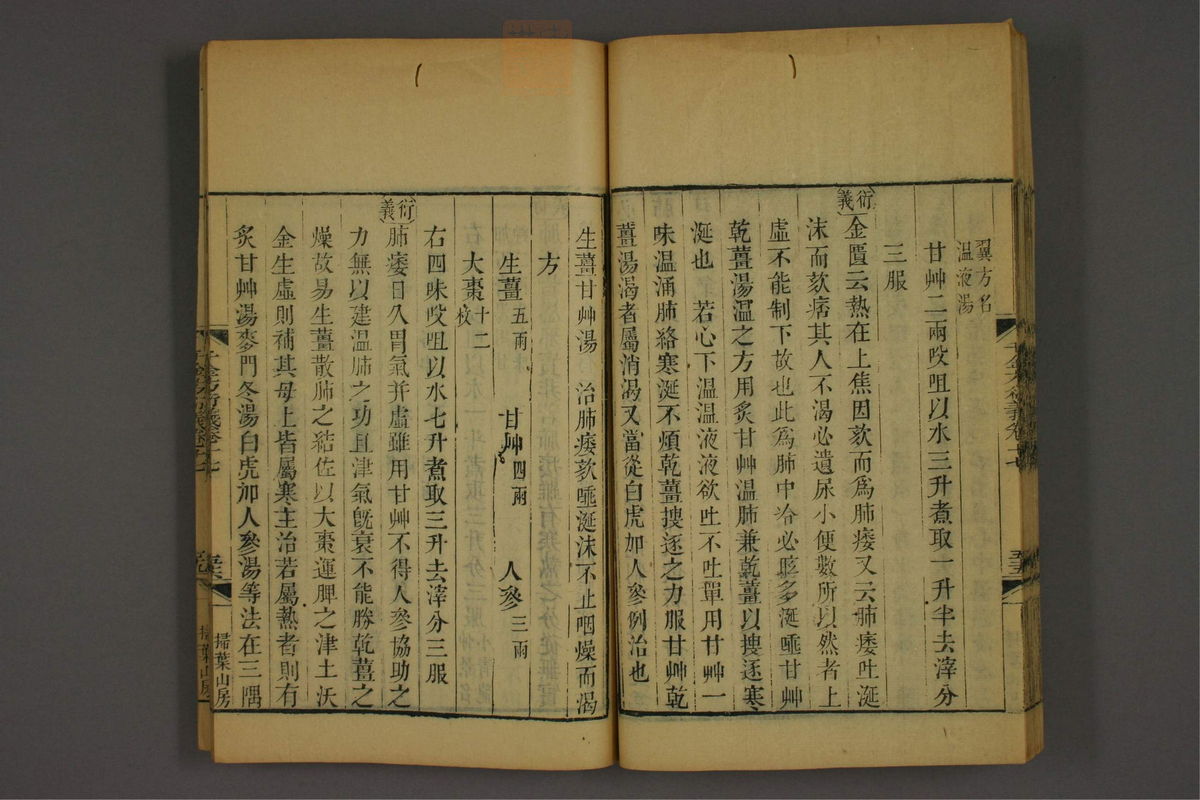 翼方名
温液湯
甘艸二兩㕮咀以水三升煮取一升半去滓分
三服
衍義
金匱云熱在上焦因欬而爲肺痿又云肺痿吐涎
沫而欬㾌其人不渴必遺尿小便數所以然者上
虛不能制下故也此爲肺中冷必眩多涎唾甘艸
乾薑湯温之方用炙甘艸温肺兼乾薑以搜逐寒
涎也　若心下温温液液欲吐不吐單用甘艸一
味温涌肺絡寒涎不煩乾薑搜逐之力服甘艸乾
薑湯渴者屬消渴又當從白虎加人參例治也
生薑甘艸湯　治肺痿欬唾涎沫不止咽燥而渴
方
生薑五兩　甘艸四兩　人參三兩
大棗十二枚
右四味㕮咀以水七升煮取三升去滓分三服
衍義
肺痿日久胃氣并虛雖用甘艸不得人參協助之
力無以建温肺之功且津氣旣衰不能勝乾薑之
燥故易生薑散肺之結佐以大棗運脾之津土沃
金生虛則補其母上皆屬寒主治若屬熱者則有
炙甘艸湯麥門冬湯白虎加人參湯等法在三隅
掃葉山房